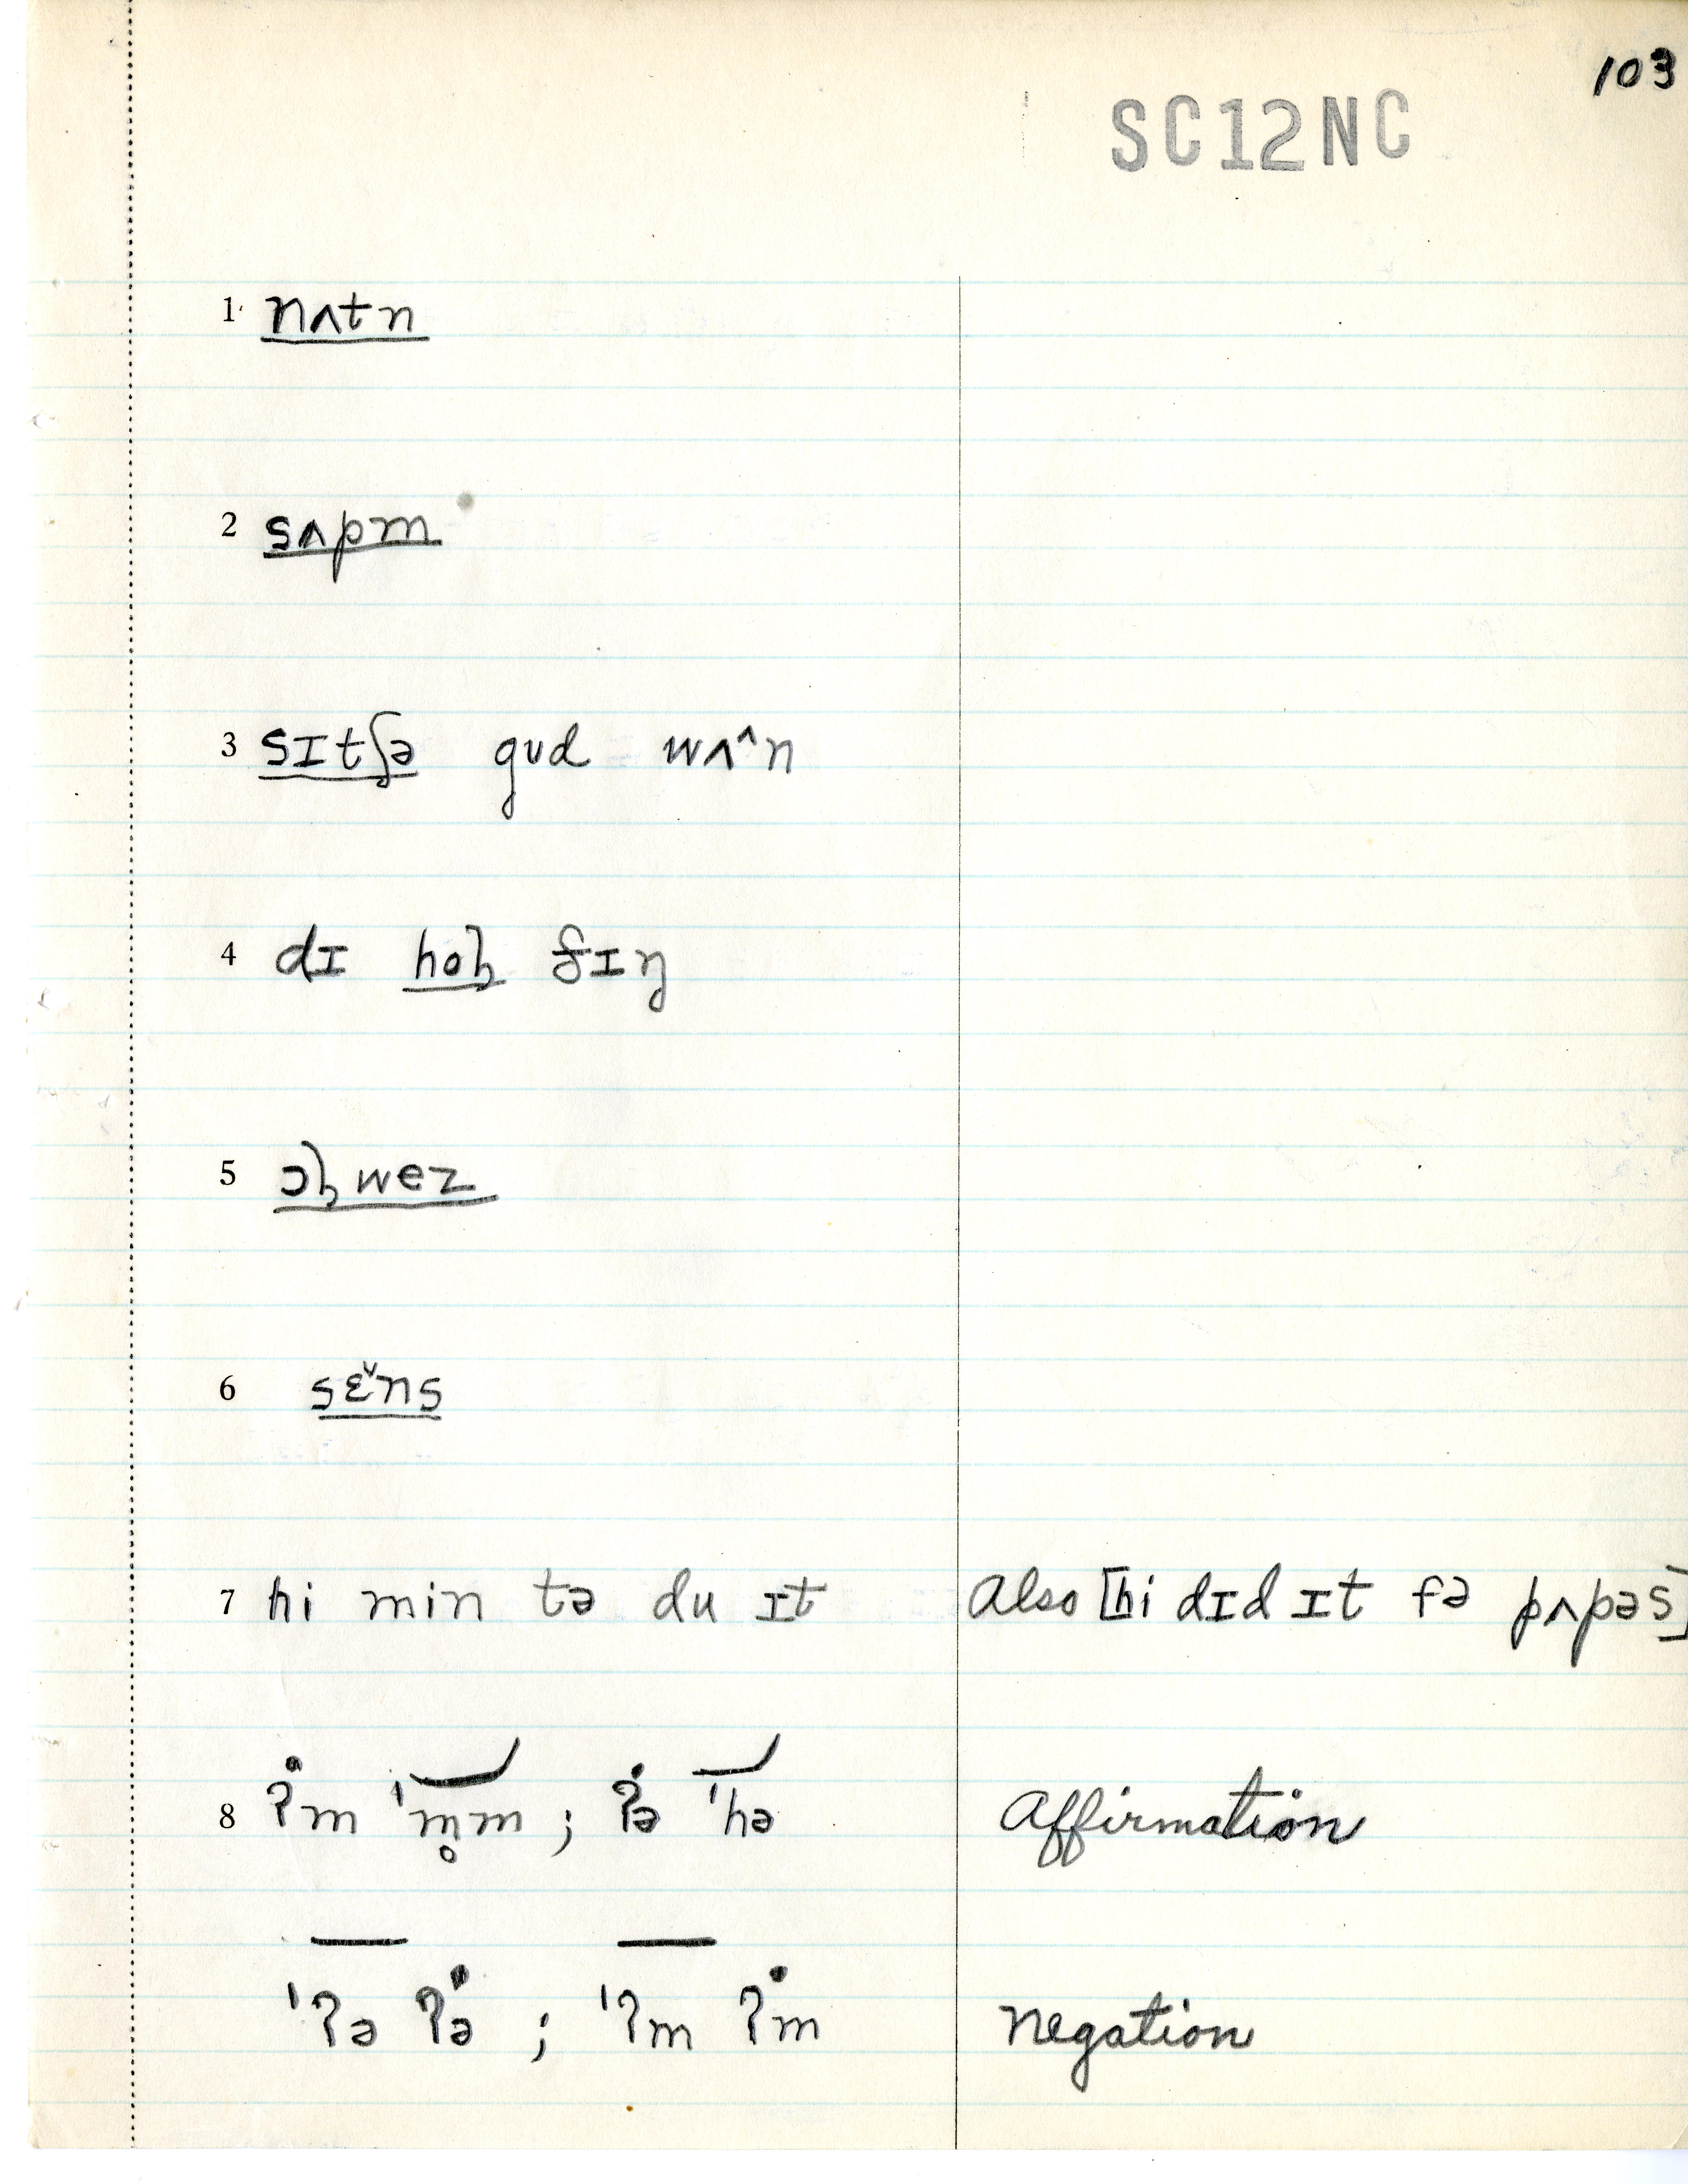 103
SC12NC
1 nʌtn
2 sʌpm
3 sɪtʃə gʊd wʌ^n
4 dɪ hoɫ fɪŋ
5 ɔɫwez
6 sɛ̌ns
7 hi min tə du ɪt Also [hi dɪd ɪt fə pʌpəs]
8 ʔm ˈm̥m ; ʔə ˈhə Affirmation
ˈʔə ʔə ; ˈʔm ʔm Negation